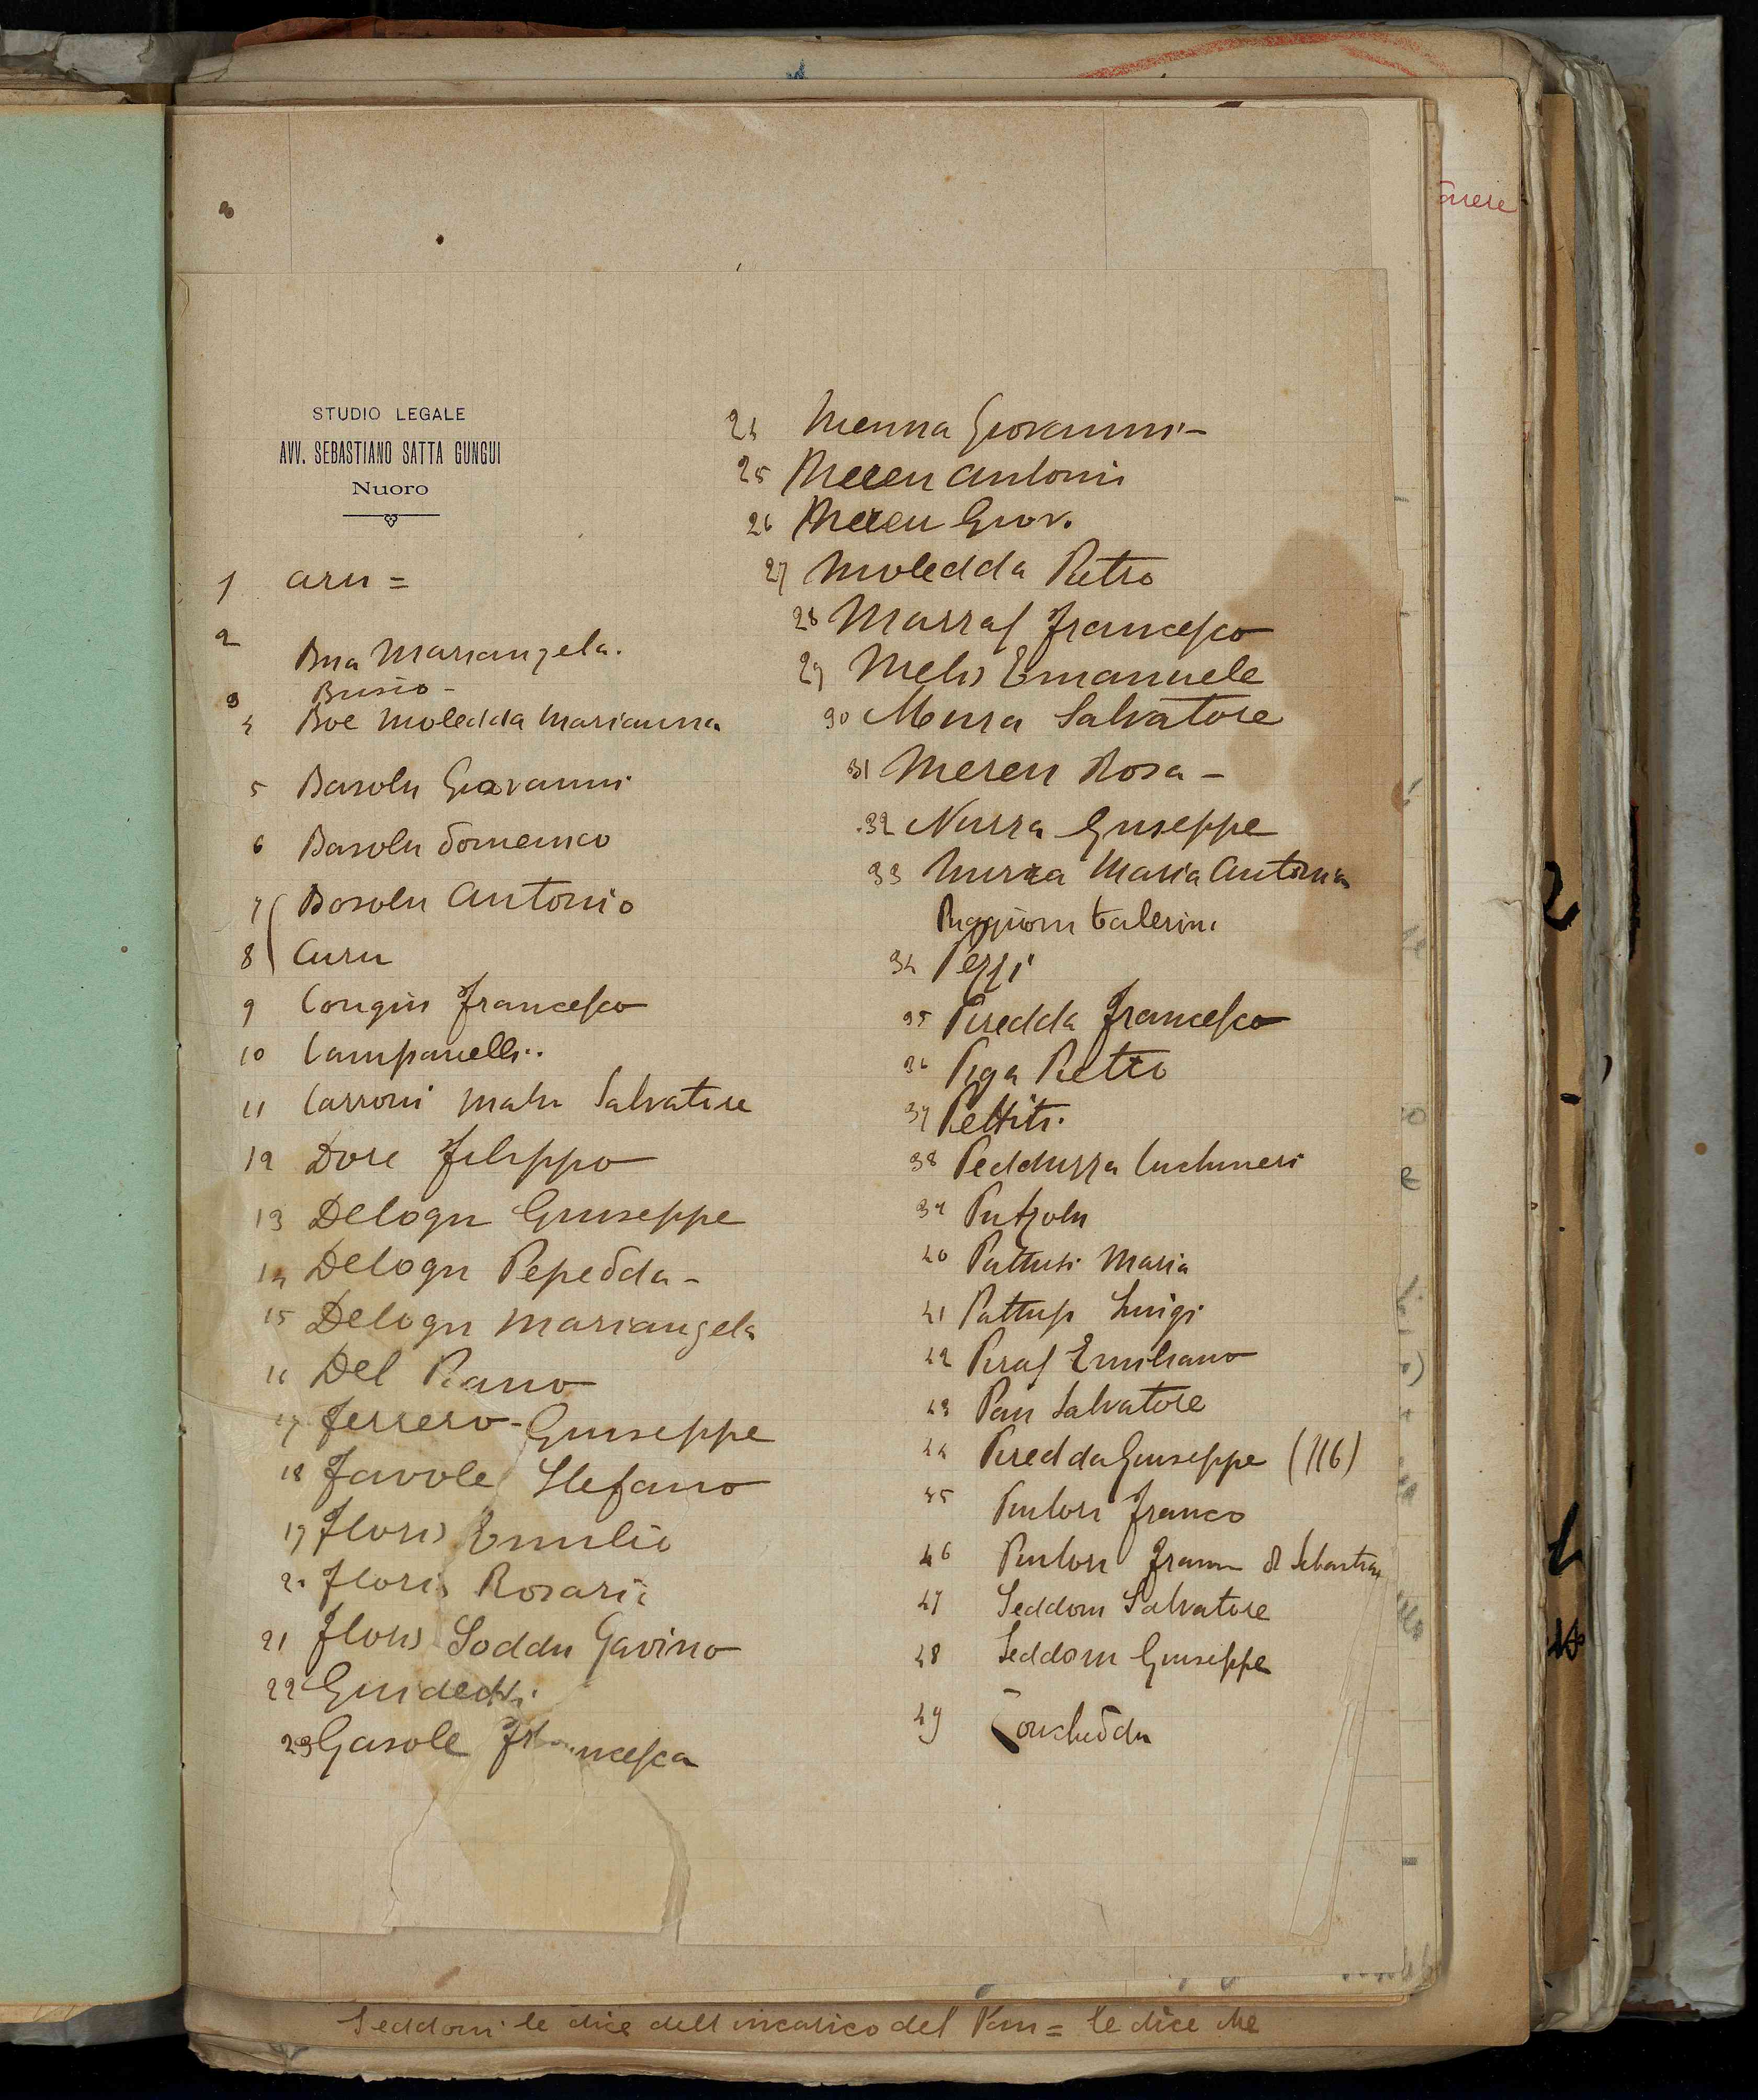 STUDIO LEGALE
AVV. SEBASTIANO SATTA GUNGUI
Nuoro
1 Aru =
2 Bua Mariangela.
3 Busio -
4 Boe Moledda Marianna
5 Basolu Giovanni
6 Basolu Domenico
7 Basolu Antonio
8 Curu
9 Congiu Francesco
10 Campanelli..
11 Carroni Malu Salvatore
12 Dore Filippo
13 Delogu Giuseppe
14 Delogu Pepedda -
15 Delogu Mariangela
16 Del Piano
17 Ferrero - Giuseppe
18 Favole Stefano
19 Floris Emilio
20 Floris Rosaria
21 Floris Soddu Gavino
22 Guidetti.
23 Gasole Francesca
24 Menna Giovanni -
25 Mereu Antonio
26 Mereu Giov.
27 Moledda Pietro
28 Marras Francesco
29 Melis Emanuele
30 Mura Salvatore
31 Mereu Rosa -
32 Nurra Giuseppe
33 Nurra Maria Antonia
Puggioni
34 Pezzi
35 Piredda Francesco
36 Piga Pietro
37 Pettiti.
38 Pedduzza
39 Putzolu
40 Pattusi Maria
41 Pattusi Luigi
42 Piras Emiliano
43 Pau Salvatore
44 Piredda Giuseppe (116)
45 Pintori Franco
46 Pintori Sebastiano
47 Seddoni Salvatore
48 Seddoni Giuseppe
49 Zoncheddu
Seddoni le dice dell'incarico del Pau = le dice che